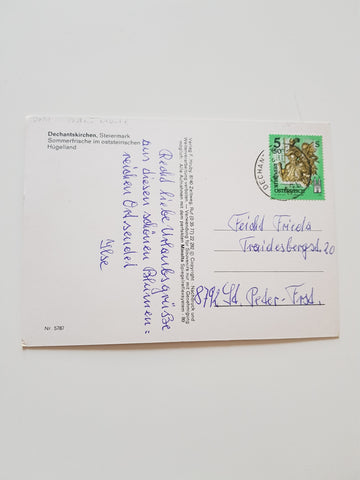 Dechantskirchen, Steiermark
Sommerfrische im oststeirischen
Hügelland
Recht liebe Urlaubsgrüße
aus diesem schönen Blumen=
reichen Ort sendet
Ilse
Nr. 5787
5
S
ÖSTERREICH
DECHANT
Feicht Frieda
Traidersbergst. 20
8792 St. Peter-Frst.